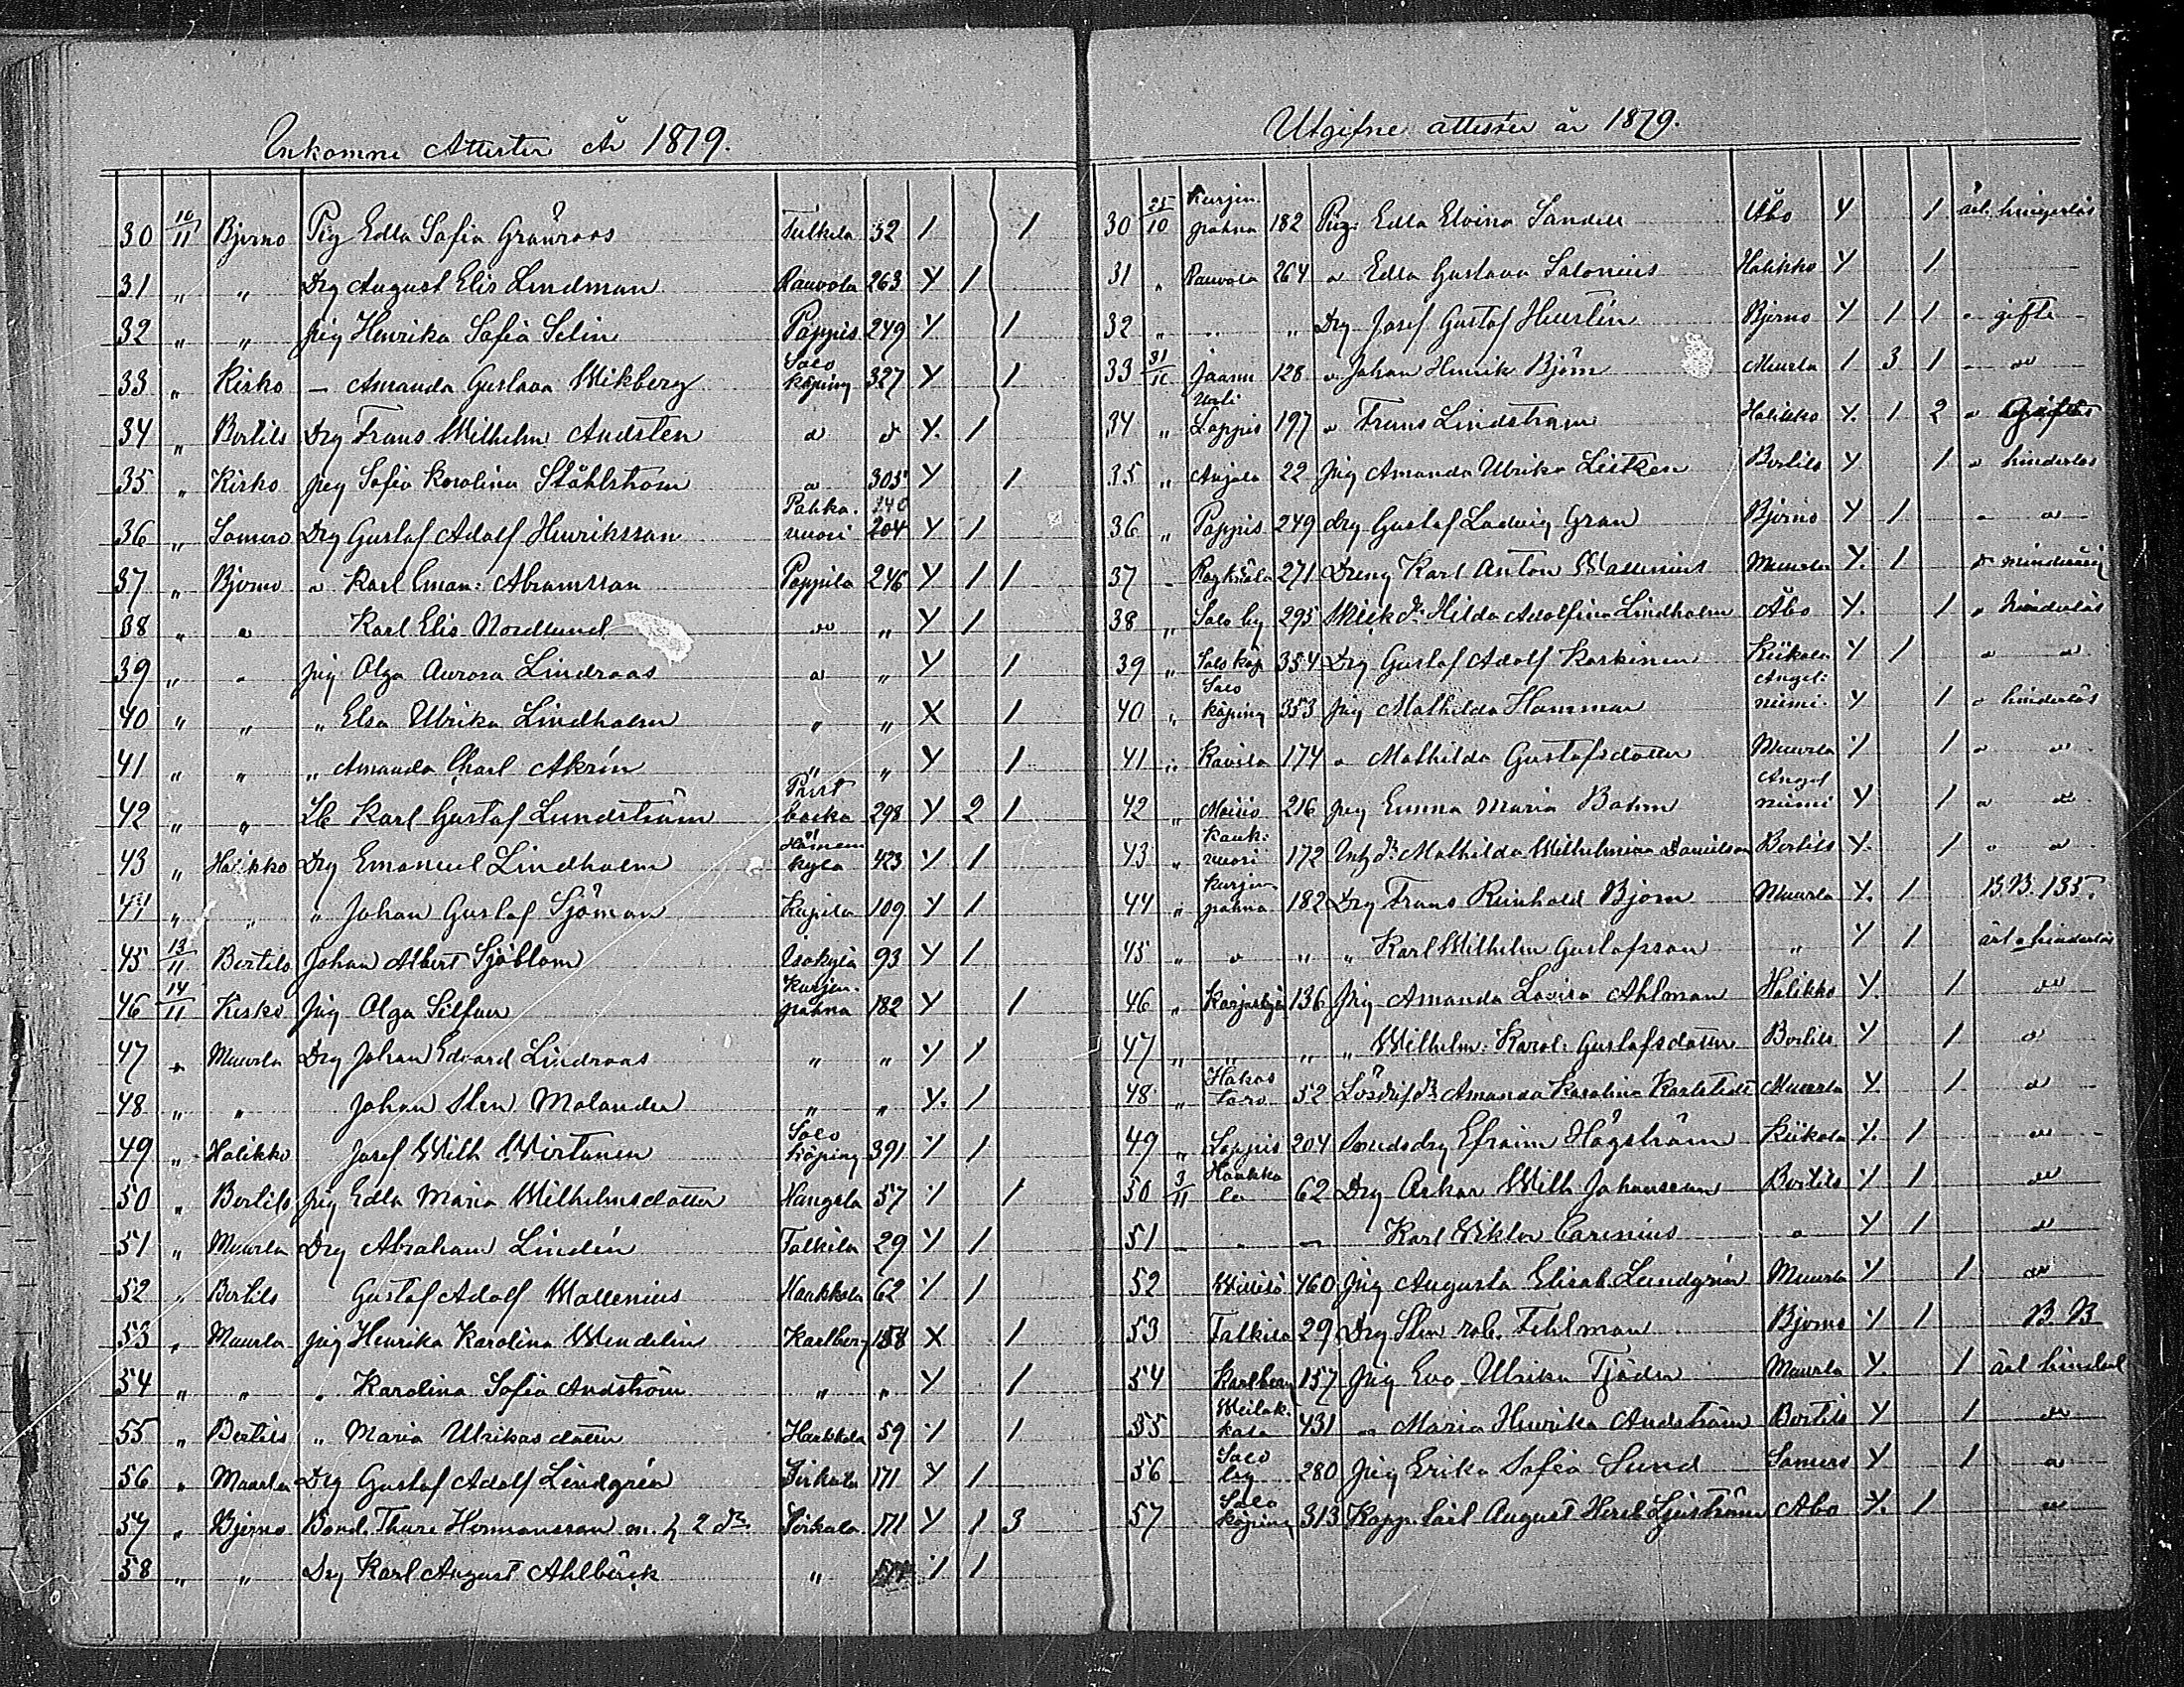 Inkomne Attester År 1879.
30 10/11 Bjerno Pig Edla Sofia Granroos Tulkila 32 1 1
31 " " Drg August Elis Lindman Rauvola 263 Y 1
32 " " Pig Henrika Sofia Selin Pappis 249 Y 1
33 " Kisko – Amanda Gustava Wikberg Salo köping 327 Y 1
34 " Bertils Drg Frans Wilhelm Andsten d d Y. 1
35 " Kisko Pig Sofia Karolina Ståhlström d 305 Y 1
36 " Somero Drg Gustaf Adolf Henriksson Pahka. vuori 204 Y 1
37 " Bjerno d Karl Eman: Abramsson Pappila 246 Y 1 1
38 " d Karl Elis Nordlund d " Y 1
39 " " Pig Olga Aurora Lindroos d " Y 1
40 " " " Elsa Ulrika Lindholm " " X 1
41 " " " Amanda Charl Akrén " " Y 1
42 " " Karl Gustaf Lundström backa 298 Y 2 1
43 " Halikko Drg Emanuel Lindholm Hämeen kylä 423 Y 1
44 " " " Johan Gustaf Sjöman Kupila 109 Y 1
45 13/11 Bertils Johan Albert Sjöblom Isokylä 93 Y 1
46 14/11 Kisko Pig Olga Selfver Kurjen- pahna 182 Y 1
47 " Muurla Drg Johan Edvard Lindroos " " Y 1
48 " " Johan Sten Molander " " Y. 1
49 " Halikko Josef Wilh Wirtanen Salo köping 391 Y 1
50 " Bertils Pig Edla Maria Wilhelmsdotter Hangela 57 Y 1
51 " Muurla Drg Abraham Lindén Talkila 29 Y 1
52 " Bertils Gustaf Adolf Wallenius Haukkala 62 Y 1
53 " Muurla Pig Henrika Karolina Wendelin Karlberg 158 X 1
54 " " " Karolina Sofia Andström " " Y 1
55 " Bertils " Maria Ulrikasdotter Haukkala 59 Y 1
56 " Muurla Drg Gustaf Adolf Lindgrén Sirkula 171 Y 1
57 " Bjerno Bond. Thure Hermansson m. h 2 dr Sirkula 171 Y 1 3
58 " " Drg Karl August Ahlbäck " Y 1
Utgifne attester år 1879.
30 25/10 Kurjen pahna 182 Pig: Edla Elvira Sandell Åbo Y 1
31 " Rauvola 264 d Edla Gustava Salonius Halikko Y 1
32 " " " Drg Josef Gustaf Hellstén Bjerno Y 1 1 " gifte
33 Jaann 128 d Johan Henrik Björn Muurla 1 3 1 - d
34 " Uuli Lappis 197 d Frans Lindström Halikko Y. 1 2 d
35 " Anjala 22 Pig Amanda Ulrika Leitzen Bertils Y 1 d hinderlös
36 " Pappis 249 drg Gustaf Ladvig Gran Bjerno Y 1 - d
37 - 271 Dreng Karl Anton Wallenius Muurla Y. 1 d minderårig
38 " Salo by 295 Hilda Adolfina Lindholm Åbo Y. 1 " hinderlös
39 " Salo köp 354 Drg Gustaf Adolf Koskinen Kiikala Y 1 d d
40 " Salo köping 353 Pig Mathilda Hammar Angel: niemi. Y 1 d hinderlös
41 " Kavila 174 d Mathilda Gustafsdotter Muurla Y 1 d d
42 " Moisio 216 Pig Emma Maria Bohm Angel niemi Y 1 d d
43 " Kauk: vuori 172 Mathilda Wilhelmina Danielson Bertils Y. 1 " d
44 " Kurjen pahna 182 Drg Frans Reinhold Björn Muurla Y. 1 B.B. 135.
45 " d " " Karl Wilhelm Gustafsson " Y 1 ärl. o hinderlös
46 " Karjaskylä 136 Pig Amanda Lovisa Ahlman Halikko Y. 1 d
47 " " " " Wilhelm: Karol: Gustafsdotter Bertils Y 1 d
48 " Hakos taro 52 Amanda Karolina Karlstedt Muurla Y. 1 d
49 " Lappis 204 Smedsdrg Efraim Högström Kiikala Y. 1 d
50 3/11 Haukka la 62 Drg Oskar Wilh Johansson Bertils Y 1 d
51 - " – Karl Wiktor Carenius d Y 1 d
52 460 Pig Augusta Elisab Lundgrén Muurla Y 1 d
53 Talkila 29 Drg Sten rob. Fehlman Bjerno Y 1 B. B
54 Karlberg 157 Pig Eva Ulrika Tjäder Muurla Y. 1 ärl hinderl
55 431 d Maria Henrika Andström Bertils Y 1 d
56 Salo by 280 Pig Erika Sofia Sund Somero Y 1 d
57 Salo köping 313 August Herib Ljuström Abo Y. 1 d